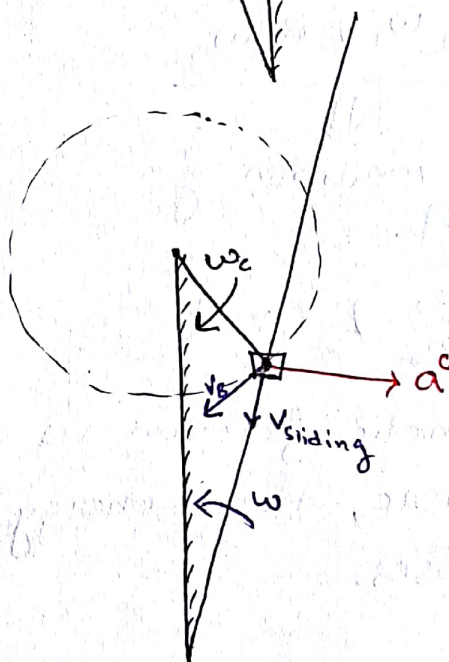 ω_c
a^c
V_B
V_sliding
ω